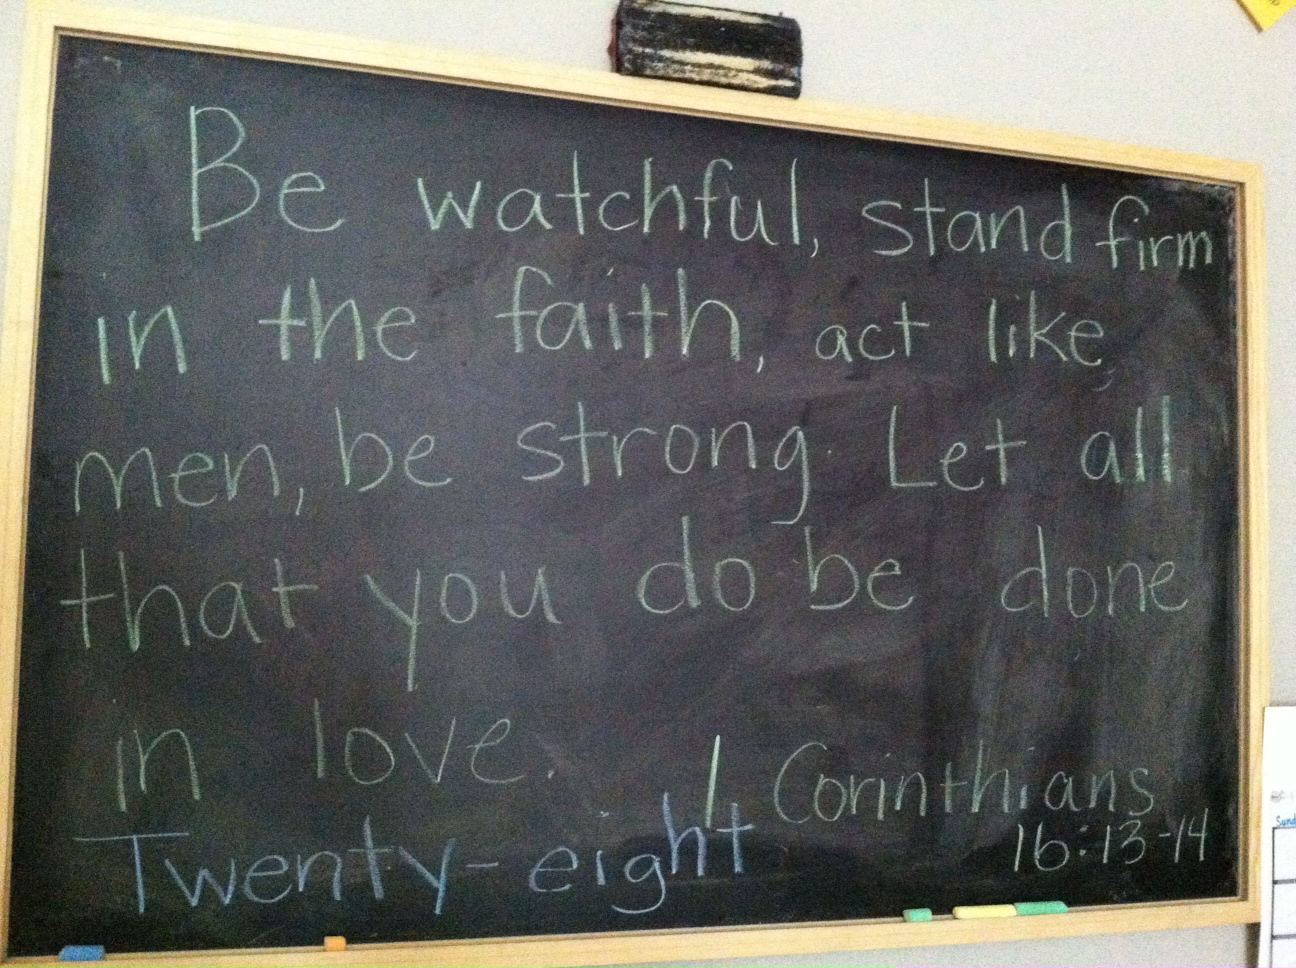 Be watchful, stand firm
in the faith, act like
men, be strong. Let all
that you do be done
in love.
1 Corinthians
16:13-14
Twenty-eight
Sund